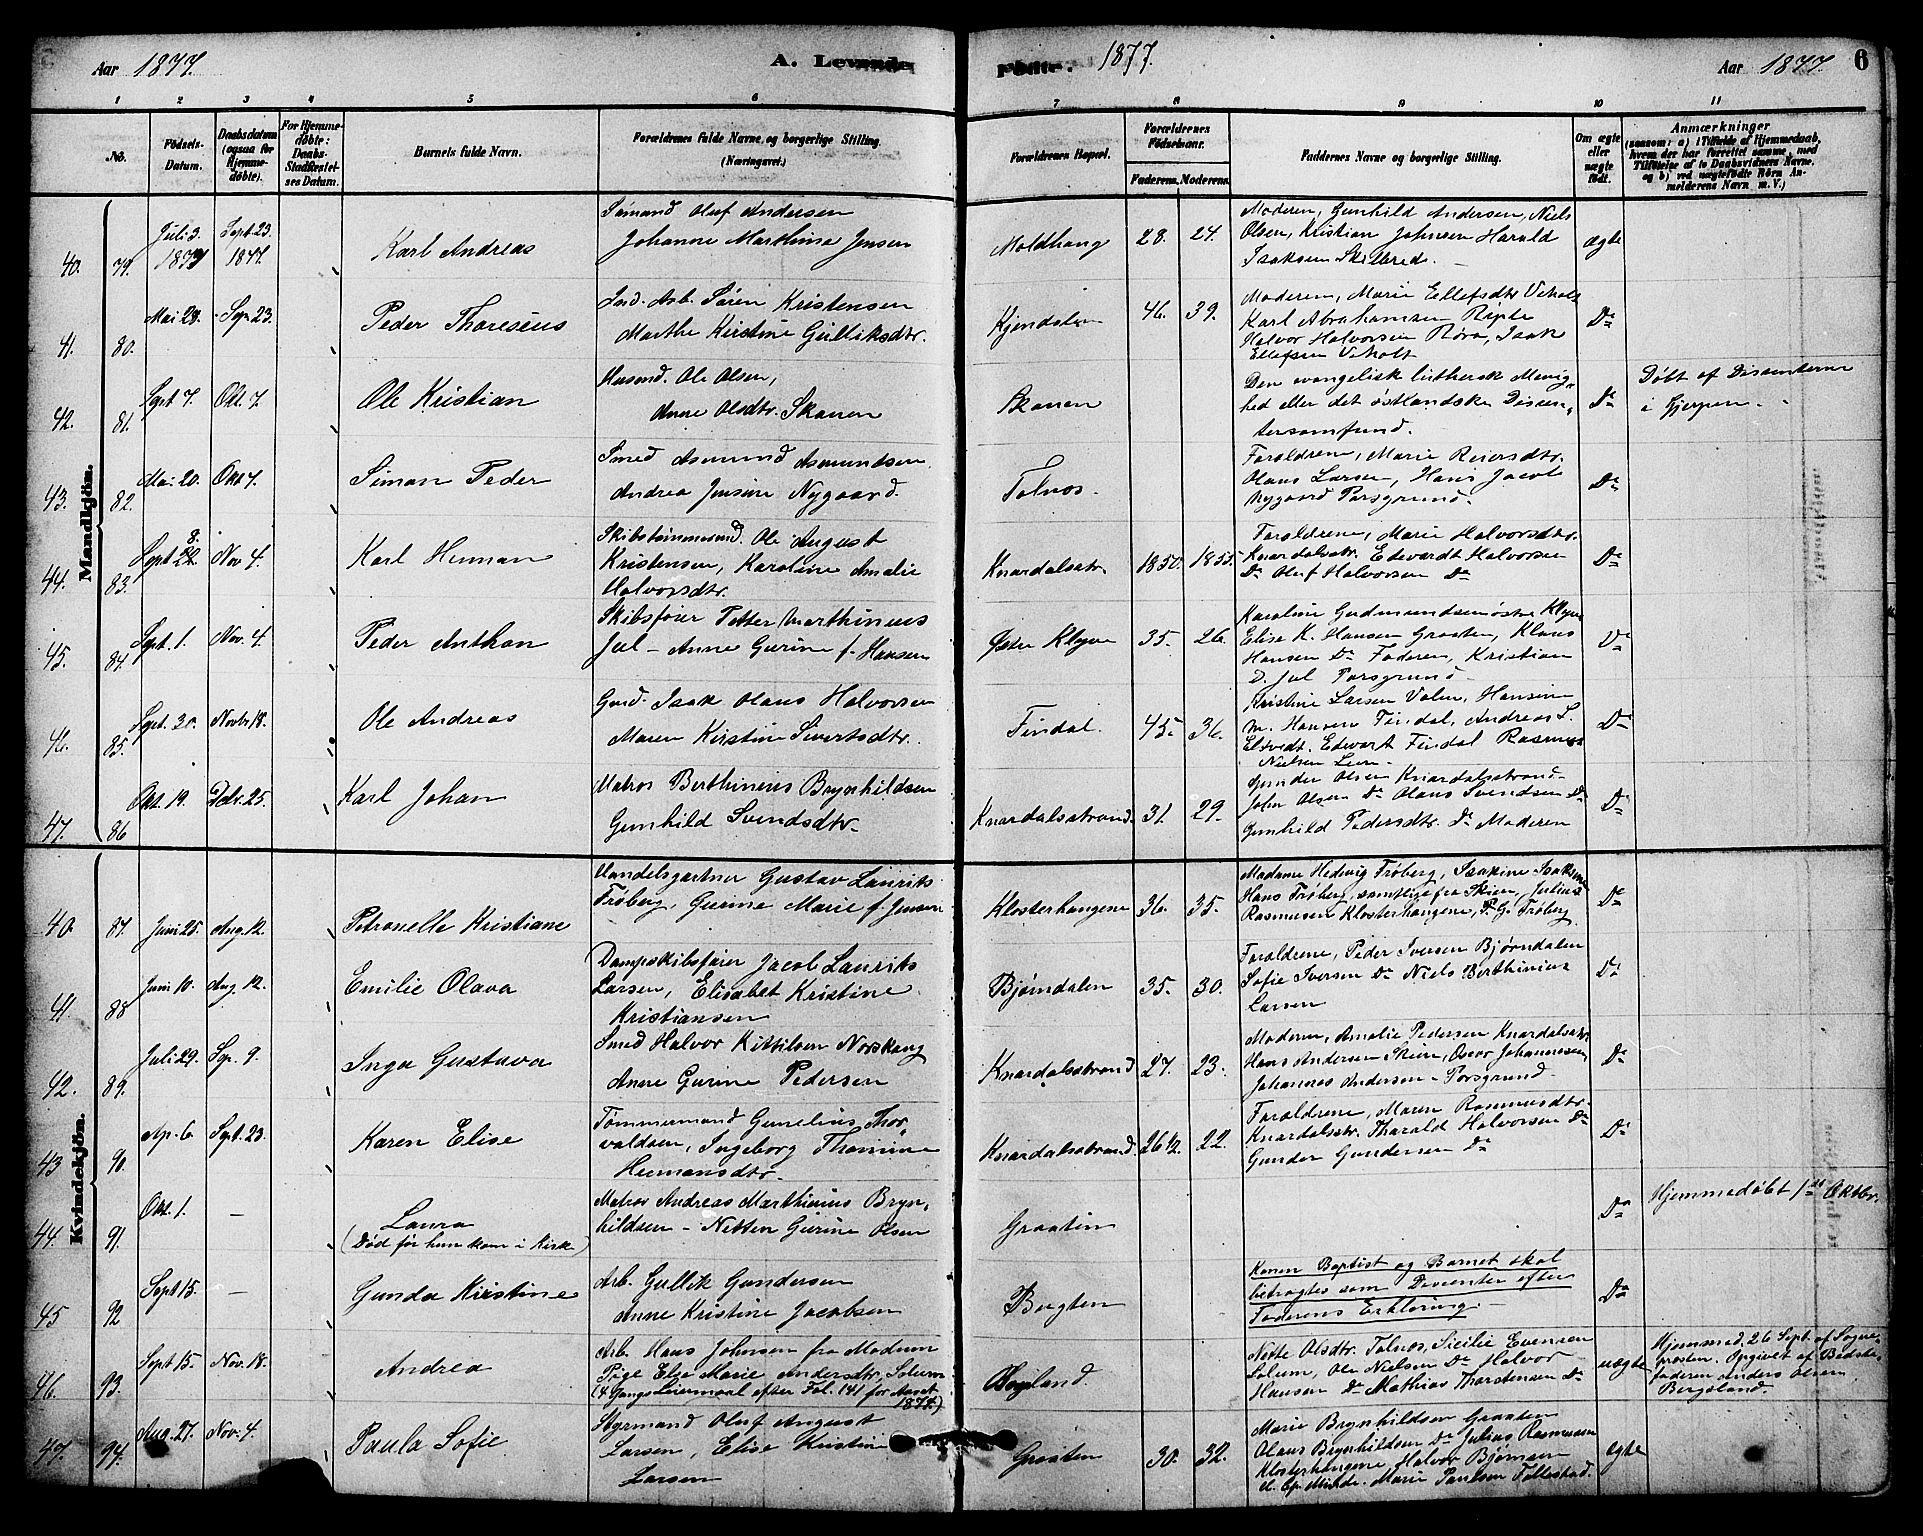 Aar 1877.
A. Levende
Fødte.
1877.
Aar 1877.
6
1
2
3
4
5
6
7
8
9
10
11
No.
Fødsels-Datum.
Daabsdatum (ogsaa for Hjemmedøbte).
For Hjemmedøbte: Daabs-Stadfæstelses Datum.
Barnets fulde Navn.
Forældrenes fulde Navne, og borgerlige Stilling.
(Næringsvei.)
Forældrenes Bopæl.
Forældrenes Fødselsaar.
Faderens. Moderens.
Faddernes Navne og borgerlige Stilling.
Om ægte eller uægte født.
Anmærkninger
(saasom: a) i Tilfælde af Hjemmedaab, hvem der har forrettet samme, med Tilføielse af to Daabsvidners Navne, og b) ved uægtefødte Børn Anmelderens Navn m. V.)
Mandkjön.
40. 79. Juli 3. 1877 Sept. 23. 1877. Karl Andreas
Sømand Oluf Andersen
Johanne Marthine Jensen
Moldhaug 28. 24.
Moderen, Gunhild Andersen, Niels
Olsen, Kristian Johnsen Harald
Isaksen Skilbred.
ægte
41. 80. Mai 28. Sep. 23. Peder Thoresius
Ind. Arb. Søren Kristensen
Marthe Kirstine Gulliksdtr.
Kjendalen 46. 39.
Moderen, Marie Ellefsdtr Veholt
Karl Abrahamsen Rigte
Halvor Halvorsen Røra, Isak
Ellefsen Veholt
Do
42. 81. Sept 7. Okt. 7. Ole Kristian
Husmd. Ole Olsen,
Anne Olsdtr. Skanen
Skanen
Den evangelisk luthersk Menig-
hed eller det østlandske Dissen-
tersamfund.
Do
Døbt af Dissenterne
i Gjerpen.
43. 82. Mai 20. Okt 7. Simon Peder
Smed Asmund Asmundsen
Andrea Jensine Nygaard.
Tolnos.
Forældrene, Marie Reiersdtr.
Olaus Larsen, Hans Jacob
Nygaard Porsgrund.
Do
44. 83. Sept 8. Nov 4. Karl Herman
Skibstømmermd. Ole August
Kristensen, Karoline Amalie
Halvorsdtr.
Knardalsstr. 1850. 1855.
Forældrene, Marie Halvorsdtr.
Knardalsstr. Edvardt Halvorsen
Do Oluf Halvorsen Do
Do
45. 84. Sept. 1. Nov. 4. Peder Anthon
Skibsfører Petter Marthinius
Jul - Anne Gurine f. Hansen
Øster Kleven 35. 26.
Karoline Gudmundsen østre Kleven
Elise K. Hansen Graaten, Klaus
Hansen Do Faderen, Kristian
D. Jul Porsgrund
Do
46. 85. Sept. 30. Novbr 18. Ole Andreas
Grd. Isak Olaus Halvorsen
Maren Kirstine Sivertsdtr.
Findal. 45. 36.
Kristine Larsen Valen, Hansine
M. Hansen Findal, Andreas L.
Eltvedt. Edvart Findal Rasmus
Nielsen
Do
47. 86 Okt. 19. Debr. 25. Karl Johan
Matros Berthinius Brynhildsen
Gunhild Svendsdtr.
Knardalsstrand. 31. 29.
Gunder Olsen Knardalsstrand
John Olsen Do Olaus Svendsen Do
Gunhild Pedersdtr. Do Moderen
Do
Kvindekjön.
40. 87. Juni 25. Aug. 12. Petronelle Kristiane
Handelsgartner Gustav Laurits
Trøberg, Gurine Marie f. Jensen
Klosterhaugene 36. 35.
Madame Hedevig Trøberg, Isakine Isaksen
Hans Trøberg, samtlige fra Skien, Julius
Rasmussen Klosterhaugene, P. G. Trøberg
Do
41. 88 Juni 10. Aug. 12. Emilie Olava
Dampskibsfører Jacob Laurits
Larsen, Elisabet Kristine
Kristiansen
Bjørndalen 35. 30.
Forældrene, Peder Iversen Bjørndalen
Sofie Iversen Do Niels Berthinius
Larsen
Do
42. 89. Juli 29. Sep. 9. Inga Gustava
Smed Halvor Kittilsen Norskaug
Anne Gurine Pedersen
Knardalsstrand 27. 23.
Moderen, Amalie Pedersen Knardalsstr
Hans Andersen Skien, Oscar Johannesen
Johannes Andersen - Porsgrund
Do
43 90. Ap. 6. Sept. 23. Karen Elise
Tømmermand Gunelius Thor-
valdsen, Ingeborg Thomine
Hermansdtr.
Knardalsstrand. 26 1/2. 22.
Forældrene, Maren Rasmusdtr.
Knardalsstr. Tharald Halvorsen Do
Gunder Gundersen Do
Do
44. 91. Okt. 1. — Laura
(Død før hun kom i Kirke)
Matros Andreas Marthinius Bryn-
hildsen - Netten Gurine Olsen
Graaten
Do
Hjemmedøbt 1ste Oktbr.
45 92 Sept 15. — Gunda Kirstine
Arb. Gullik Gundersen
Anne Kristine Jacobsen
Bergten
Konen Baptist og Barnet skal
betragtes som Dissenter efter
Faderens Erklæring.
Do
46. 93. Sept 15. Nov. 18. Andrea
Arb. Hans Johnsen fra Modum
Pige Else Marie Andersdtr. Solum
(4 Gangs Leiermaal efter Fol. 141 for Aaret
1874.)
Bergland.
Nette Olsdtr. Tolnos, Sicilie Evensen
Solum, Ole Nielsen Do Halvor
Hansen Do Mathias Thorstensen Do
uægte
Hjemmed. 26 Sept. af Sogne-
præsten. Opgivet af Bedste-
faderen Anders Olsen
Bergsland.
47. 94. Aug. 27. Nov. 4. Paula Sofie
Styrmand Oluf August
Larsen, Elise Kristine
Larsen
Graaten 30. 32.
Marie Brynhildsen Graaten
Olaus Brynhildsen Do Julius Rasmussen
Klosterhaugene Halvor Bjørnsen
Marie Paulsen Follestad.
ægte